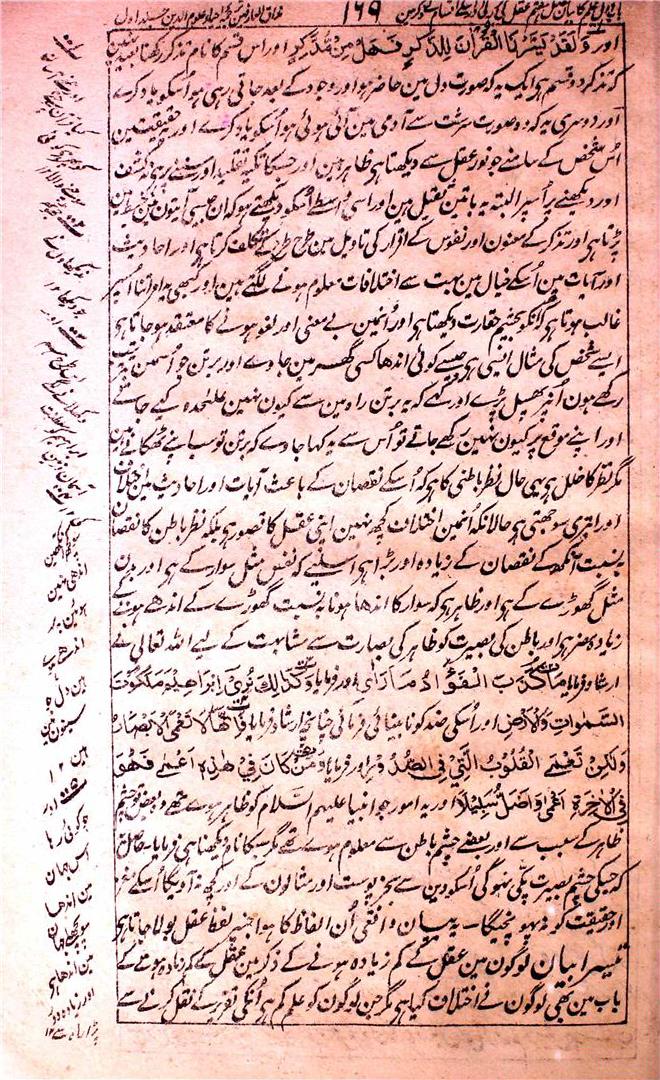 باب اول علم کا بیان فصل ہفتم عقل کی بزرگی اور اسکے اقسام کے ذکر مین
۱۶۹
مذاق العارفین ترجمۂ احیاء علوم الدین جلد اول
اور وَلَقَدْ يَسَّرْنَا الْقُرْآنَ لِلذِّكْرِ فَهَلْ مِنْ مُّدَّكِرٍ اور اس قسم کا نام تذکر رکھنا بعید نہین
کہ تذکر دو قسم ہے ایک یہ کہ صورت دل مین حاضر ہو اور وجود کے بعد جاتی رہی ہو اُسکو یاد کرے
اور دوسری یہ کہ وہ صورت سرشت سے آدمی مین آئی ہوئی ہو اُسکو یاد کرے اور یہ حقیقتین
اُس شخص کے سامنے جو نور عقل سے دیکھتا ہے ظاہر ہین اور جسکا تکیہ تقلید اور سننے پر ہے نہ کشف
اور دیکھنے پر اُسپر البتہ یہ باتین ثقیل ہین اور اسی واسطے اُسکو دیکھتے ہو کہ ان جیسی آیتون مین خبط مین
پڑتا ہے اور تذکر کے معنون اور نفوس کے اقرار کی تاویل مین طرح طرح کے تکلف کرتا ہے اور احادیث
اور آیات مین اُسکے خیال مین بہت سے اختلافات معلوم ہونے لگتے ہین اور کبھی یہ امر اتنا اُسپر
غالب ہوتا ہے کہ انکو بچشم حقارت دیکھتا ہے اور اُنمین بے معنی اور لغو ہونے کا معتقد ہو جاتا ہے
ایسے شخص کی مثال ایسی ہے جیسے کوئی اندھا کسی گھر مین جاوے اور برتن جو اُسمین بترتیب
رکھے ہون اُنپر پھسل پڑے اور کہے کہ یہ برتن راہ مین سے کیون نہین علٰحدہ کیے جاتے
اور اپنے موقع پر کیون نہین رکھے جاتے تو اُس سے یہ کہا جاوے کہ برتن تو سب اپنے ٹھکانے ہین
مگر نظر کا خلل ہے یہی حال نظر باطنی کا ہے کہ اُسکے نقصان کے باعث آیات اور احادیث مین اختلاف
اور ابتری سوجھتی ہے حالانکہ اُنمین اختلاف کچھ نہین اپنی عقل کا قصور ہے بلکہ نظر باطن کا نقصان
بہ نسبت آنکھ کے نقصان کے زیادہ اور بڑا ہے اسلیے کہ نفس مثل سوار کے ہے اور بدن
مثل گھوڑے کے ہے اور ظاہر ہے کہ سوار کا اندھا ہونا بہ نسبت گھوڑے کے اندھے ہونے کے
زیادہ مضر ہے اور باطن کی بصیرت کو ظاہر کی بصارت سے مشابہت کے لیے اللہ تعالی نے
ارشاد فرمایا مَا كَذَبَ الْفُؤَادُ مَا رَاٰى اور فرمایا وَكَذٰلِكَ نُرِيْ اِبْرَاهِيْمَ مَلَكُوْتَ
السَّمٰوَاتِ وَالْاَرْضِ اور اُسکی ضد کو نابینائی فرمائی چنانچہ ارشاد فرمایا فَاِنَّهَا لَا تَعْمَى الْاَبْصَارُ
وَلٰكِنْ تَعْمَى الْقُلُوْبُ الَّتِيْ فِى الصُّدُوْرِ اور فرمایا وَمَنْ كَانَ فِيْ هٰذِهٖ اَعْمٰى فَهُوَ
فِى الْاٰخِرَةِ اَعْمٰى وَاَضَلُّ سَبِيْلًا اور یہ امور جو انبیا علیہم السلام کو ظاہر ہوے تھے بعض تو چشم
ظاہر کے سبب سے اور بعضے چشم باطن سے معلوم ہوے تھے مگر سبکا نام دیکھنا ہی فرمایا۔ حاصل
کہ جسکی چشم بصیرت پکی نہوگی اُسکو دین سے بجز پوست اور مثالون کے اور کچھ نہ آویگا اُسکے مغز
اور حقیقت کو نہ پہونچیگا۔ یہ بیان واقعی اُن الفاظ کا ہوا جنپر لفظ عقل بولا جاتا ہے
تیسرا بیان لوگون مین عقل کے کم زیادہ ہونے کے ذکر مین عقل کے کم زیادہ ہونے کے
باب مین بھی لوگون نے اختلاف کیا ہے مگر جن لوگون کو علم کم ہے اُنکی تقریر کے نقل کرنے سے
آنکھین
اندھی نہین
ہوتین پر
اندھے
ہین دل جو
سینون مین
ہین ۱۲
اور
جو کوئی رہا
اس جہان
مین اندھا
سو پچھلے جہان
مین اندھا ہے
اور زیادہ دور
پڑا راہ سے ۱۲